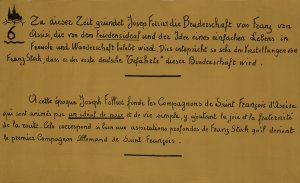 6
Zu dieser Zeit gründet Joseph Folliet die Bruderschaft von Franz von
Assisi, die von dem Friedensideal und der Idee eines einfachen Lebens in
Freude und Wanderschaft belebt wird. Dies entspricht so sehr den Vorstellungen von
Franz Stock, dass er der erste deutsche "Gefährte" dieser Bruderschaft wird.
A cette époque Joseph Folliet fonde les Compagnons de Saint François d'Assise
qui sont animés par un idéal de paix et de vie simple, y ajoutant la joie et la fraternité
de la route. Cela correspond si bien aux aspirations profondes de Franz Stock qu'il devient
le premier Compagnon Allemand de Saint François.